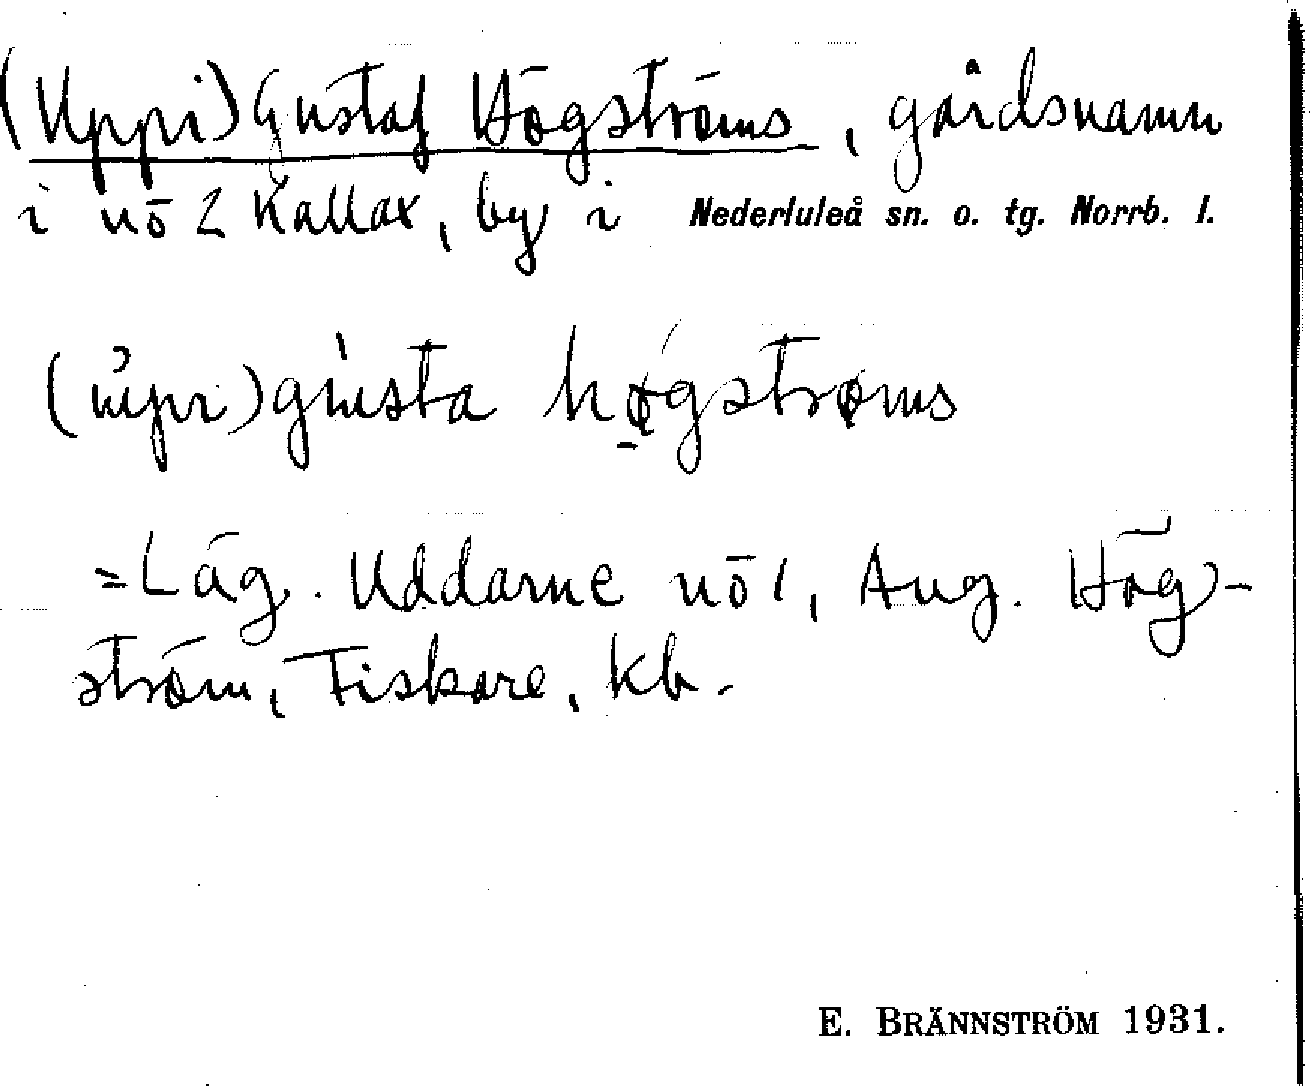 (Uppi) Gustaf Högströms, gårdsnamn
i nö 2 Kallax, by i Nederluleå sn. o. tg. Norrb. l.
gústa høgstrøms
= Läg. Uddarne nö 1, Aug. Hög-
ström, Fiskare, kb.
E. BRÄNNSTRÖM 1931.